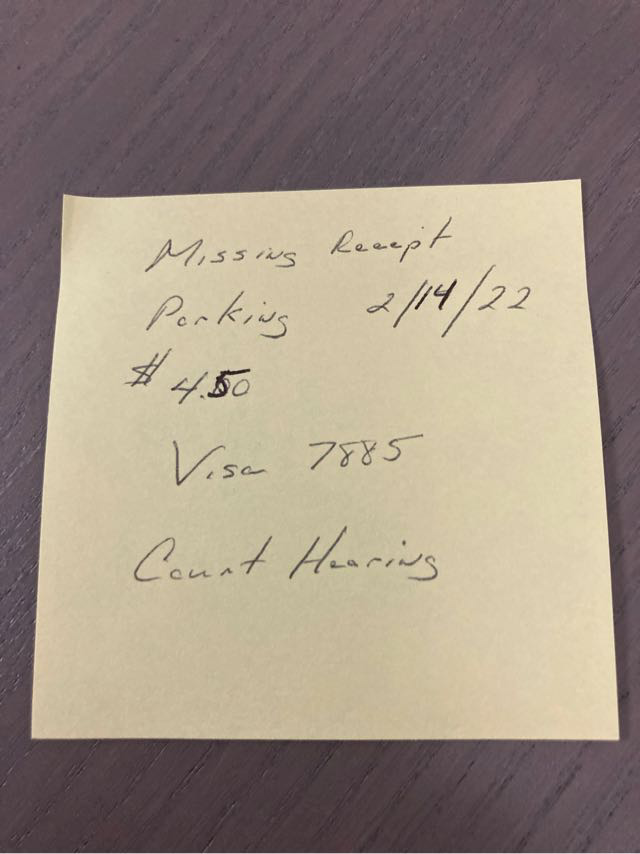 Missing Receipt
Parking 2/14/22
$ 4.50
Visa 7885
Court Hearing